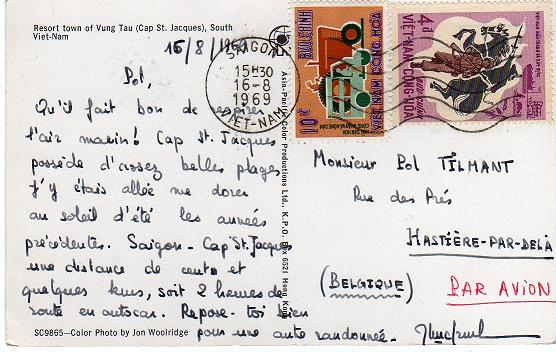 Resort town of Vung Tau (Cap St. Jacques), South
Viet-Nam
15/8/1969
Pol,
Qu'il fait bon de respirer
l'air marin! Cap St. Jacques
possède d'assez belles plages
J'y étais allée me dorer
au soleil d'été les années
précédentes. Saigon-Cap St. Jacques
une distance de cent et
quelques kms, soit 2 heures de
route en autocar. Repose-toi bien
pour une autre randonnée.
SC9865—Color Photo by Jon Woolridge
Asia-Pacific Color Productions Ltd., K.P.O. Box 6521 Hong Kong
SAIGON
15H30
16-8
1969
VIET-NAM
BUU CHINH
VIỆT NAM CỘNG HÒA
10đ
4đ
VIỆT-NAM CỘNG-HÒA
Monsieur Pol TILMANT
Rue des Prés
HASTIÈRE-PAR-DELÀ
(BELGIQUE)
PAR AVION